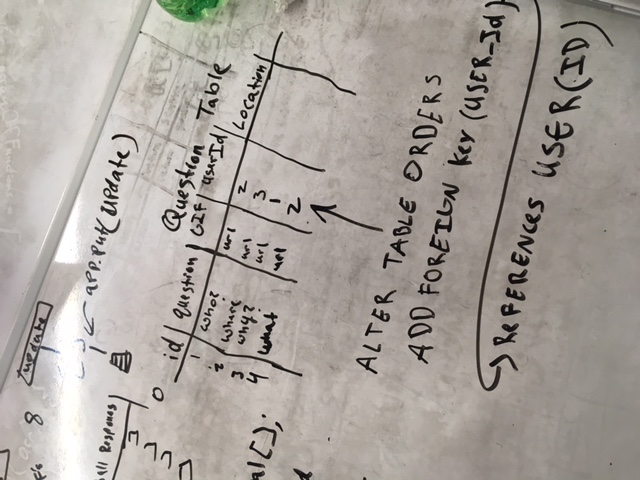 8
update
app.put(update)
all Response
3
0
Question Table
id question GIF userId Location
1 who? url 2
2 where url 3
3 why? url 1
4 what url 2
al[];
ALTER TABLE ORDERS
ADD FOREIGN Key (USER_Id)
REFERENCES USER(ID)